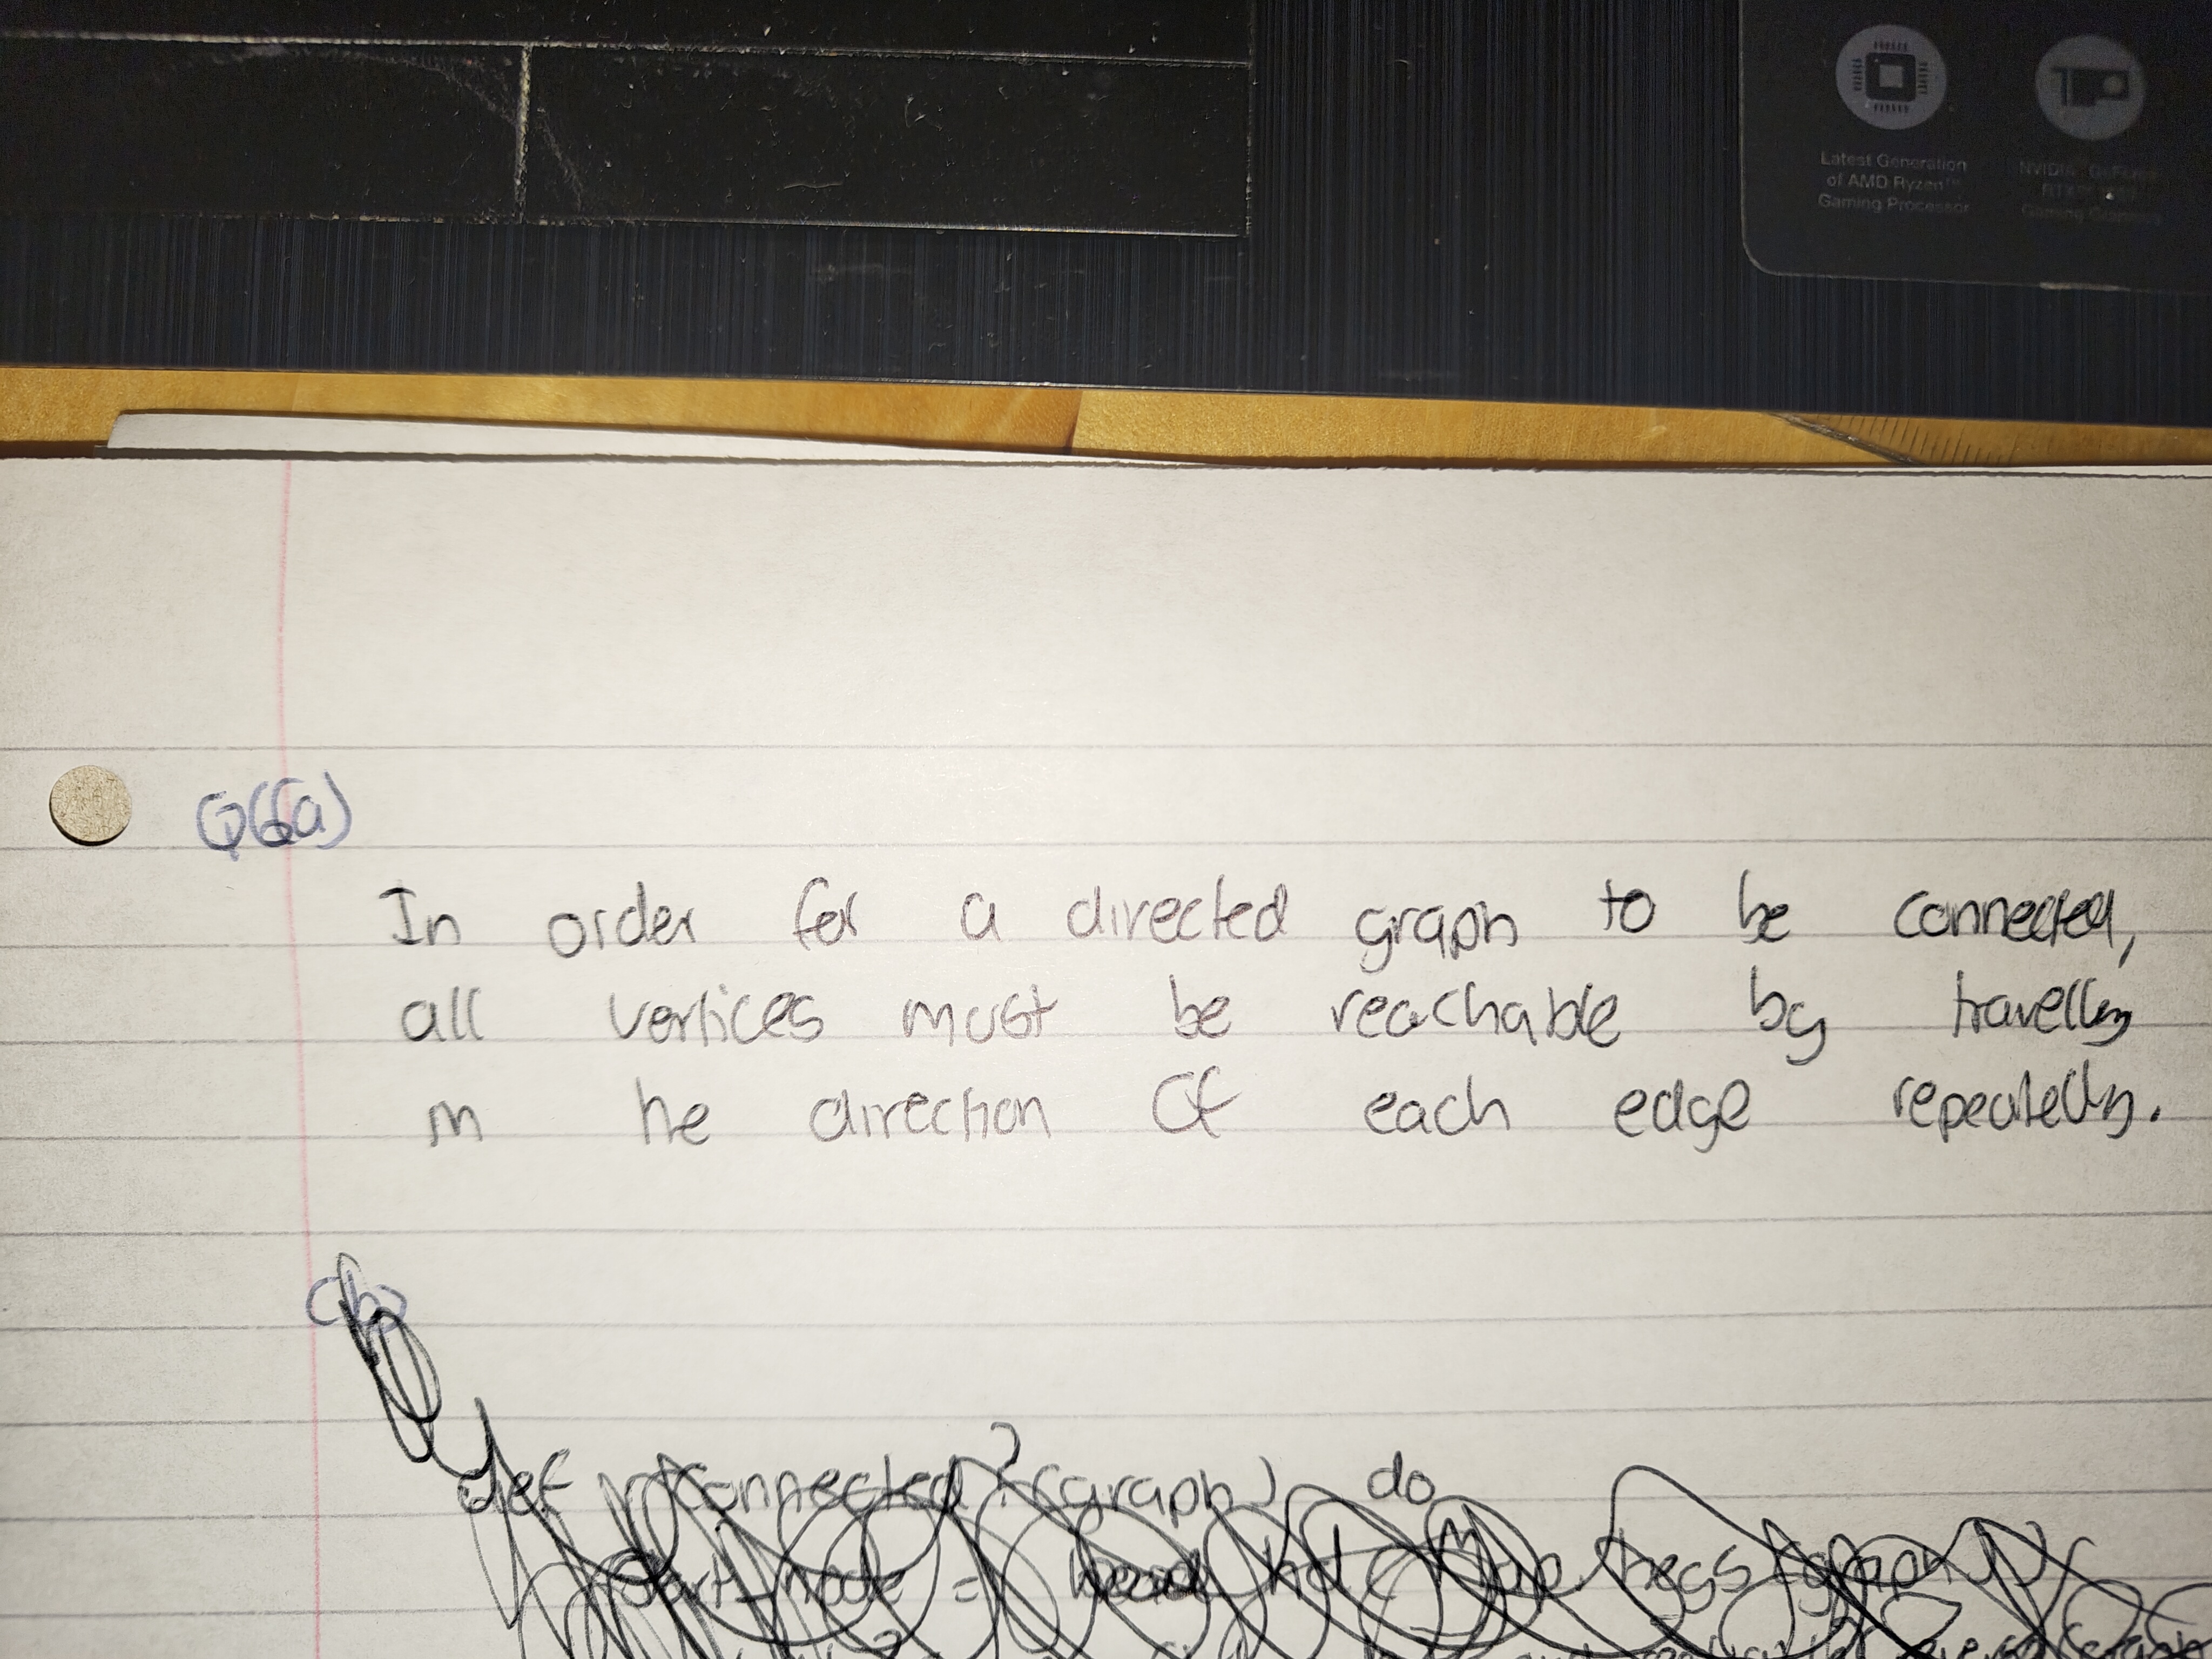 Latest Generation
of AMD Ryzen™
Gaming Processor
NVIDIA GeForce
Gaming Graphics
Q6(a)
In order for a directed graph to be connected,
all vertices must be reachable by travelling
in the direction of each edge repeatedly.
(b)
def connected?(graph) do
start_node = hd(Map.keys(graph))